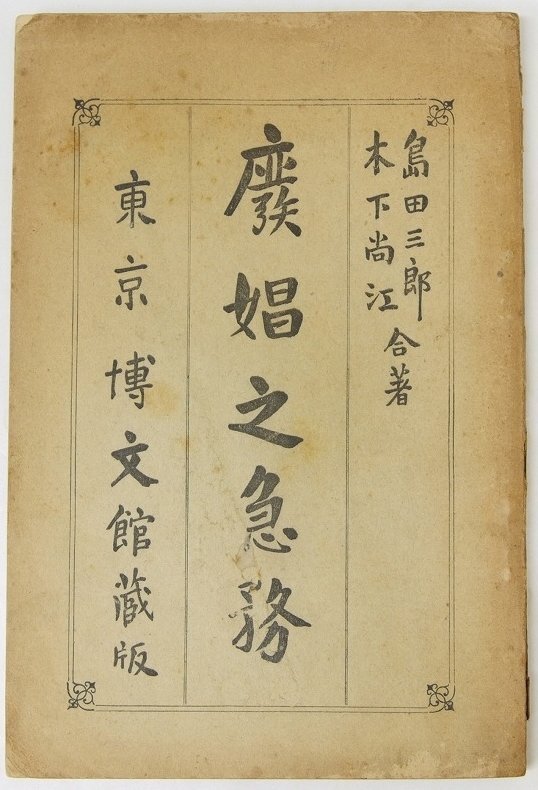 島田三郎
木下尚江
合著
廢娼之急務
東京博文館藏版